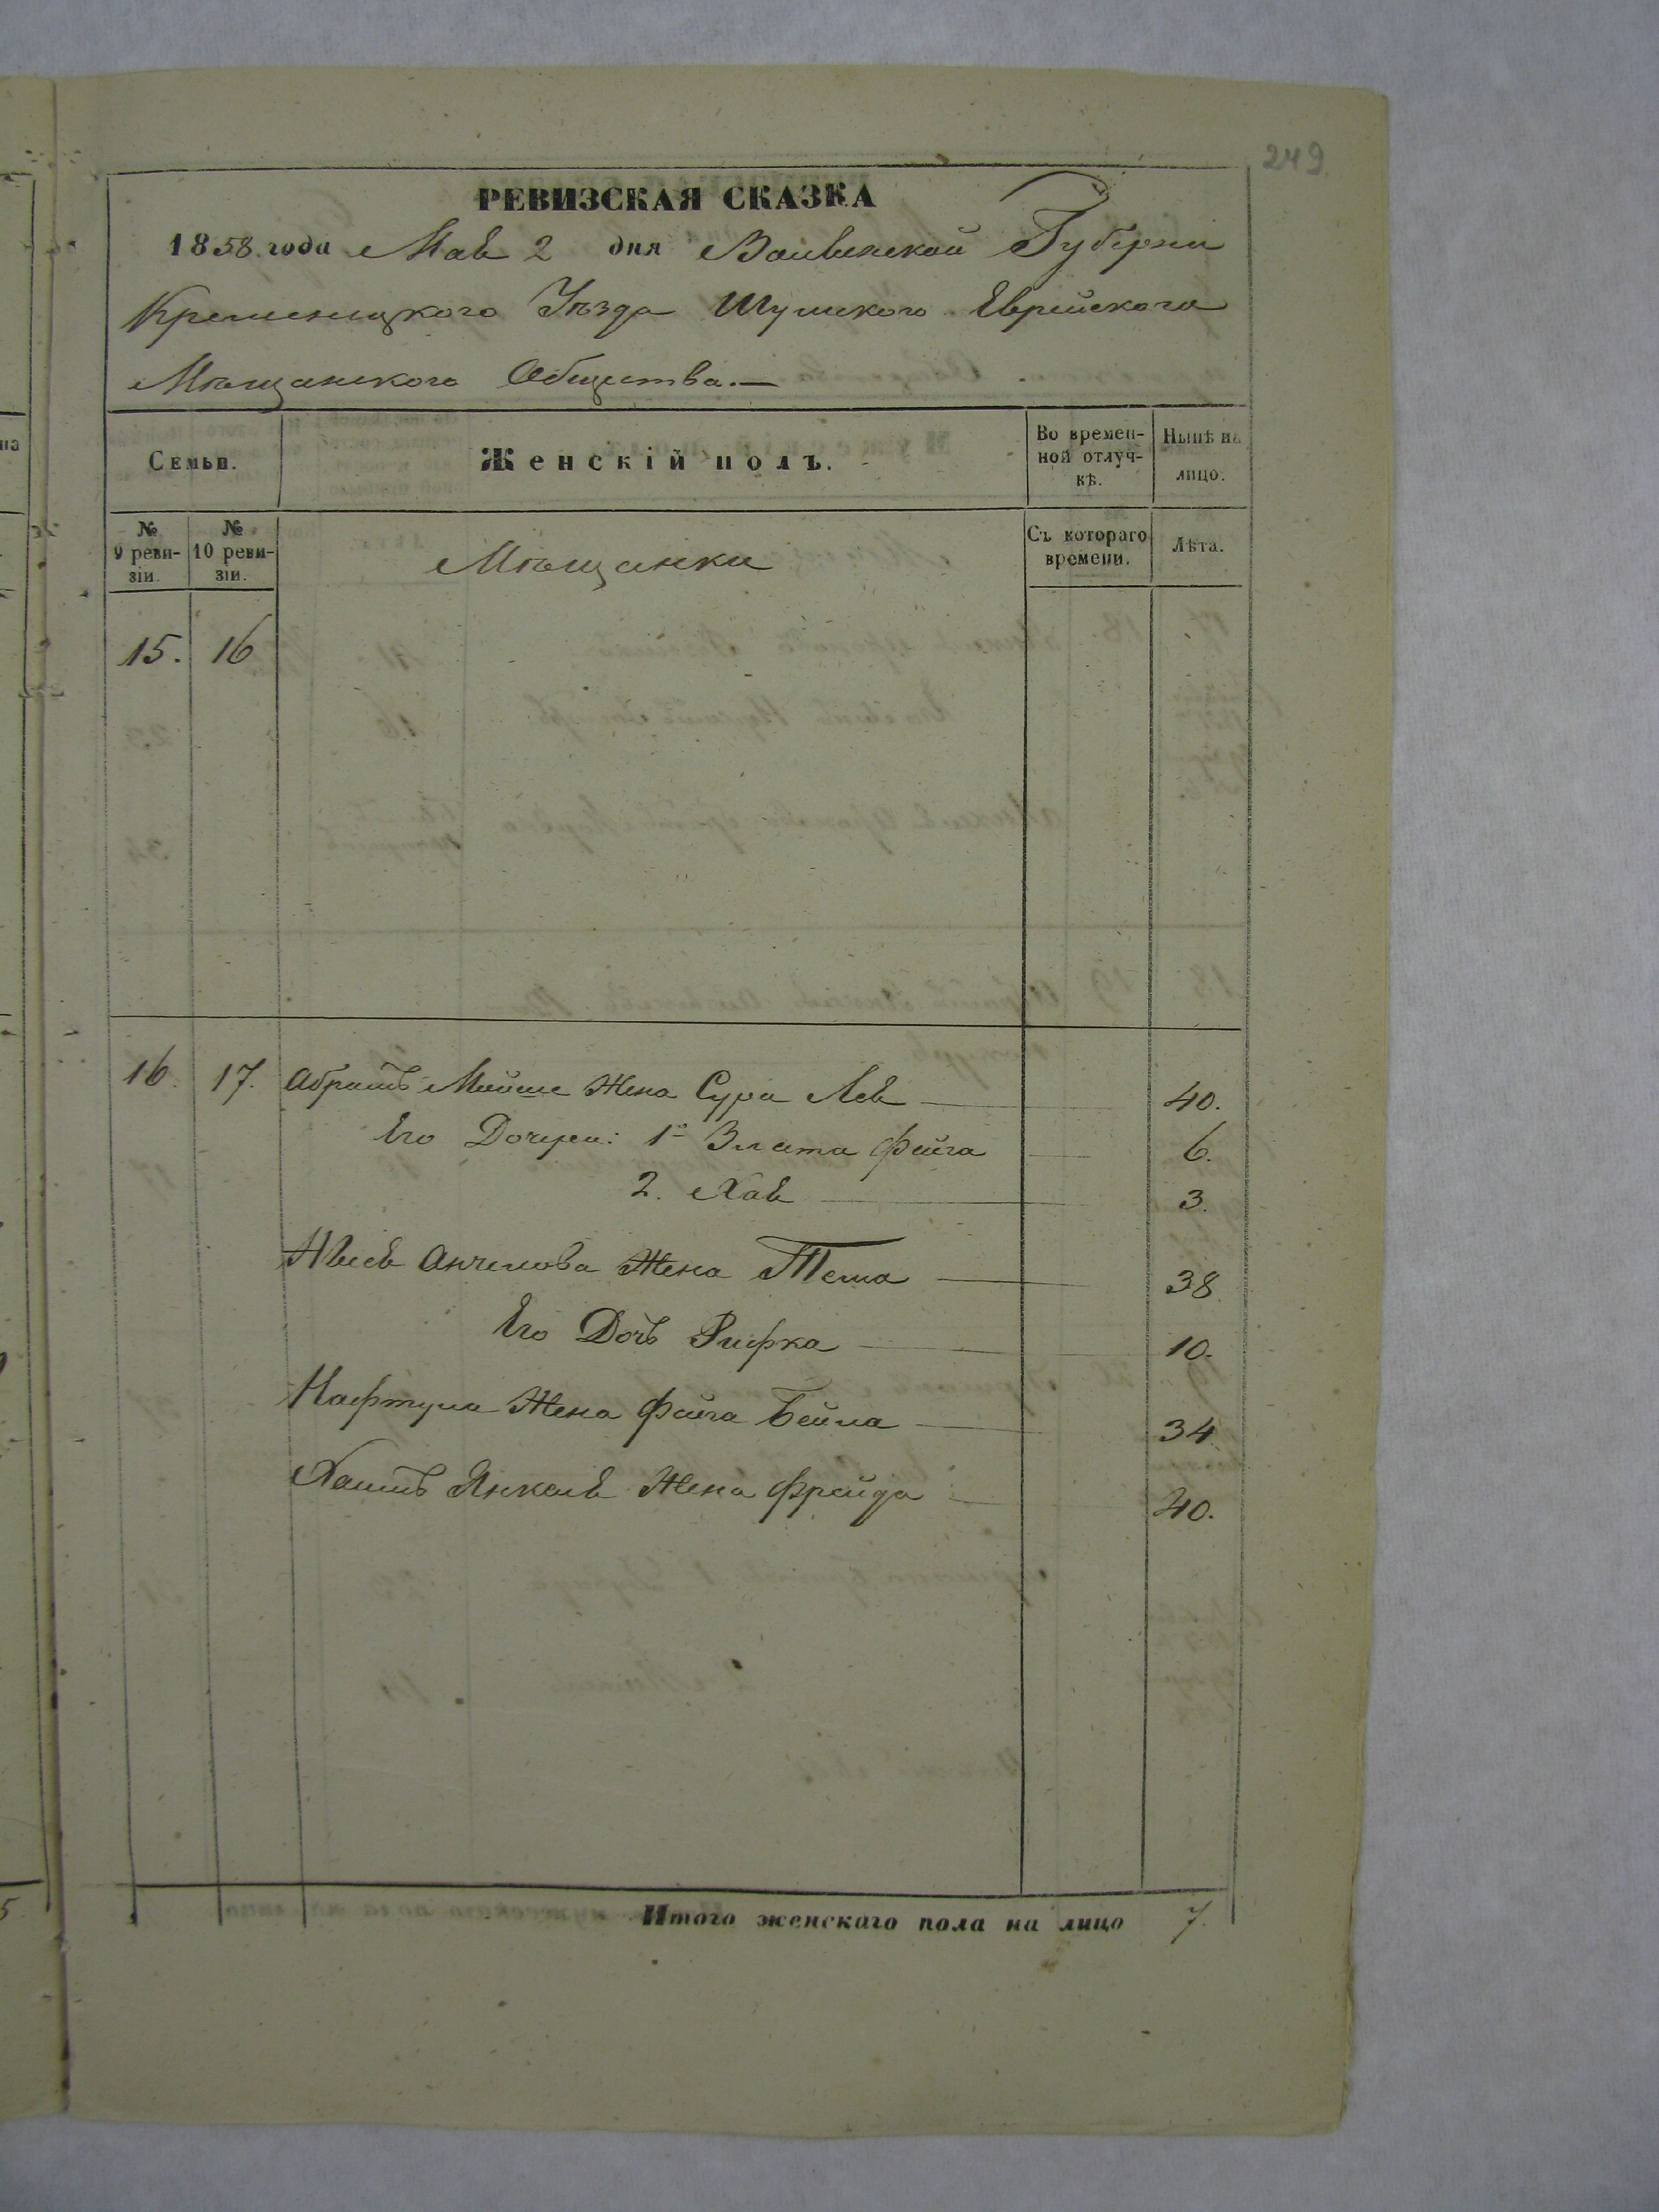 249
РЕВИЗСКАЯ СКАЗКА
1858 года Мая 2 дня Волынской Губерни
Кременецкого Уѣзда Шумского Еврейского
Мѣщанского Общества.—
Семьи.
Женскій полъ.
Во времен-
ной отлуч-
кѣ.
Нынѣ на
лицо.
№
9 реви-
зіи.
№
10 реви-
зіи.
Мѣщанки
Съ котораго
времени.
Лѣта.
15. 16
16. 17. Абрамъ Мойше Жена Сура Лея 40.
Его Дочери: 1я Злата Фейга 6.
2. Хая 3.
Жена Теша 38
Его Дочь Рифка 10.
Нафтула Жена Фейга Бейла 34
Хаимъ Янкеля Жена Фрейда 40.
Итого женскаго пола на лицо 7.